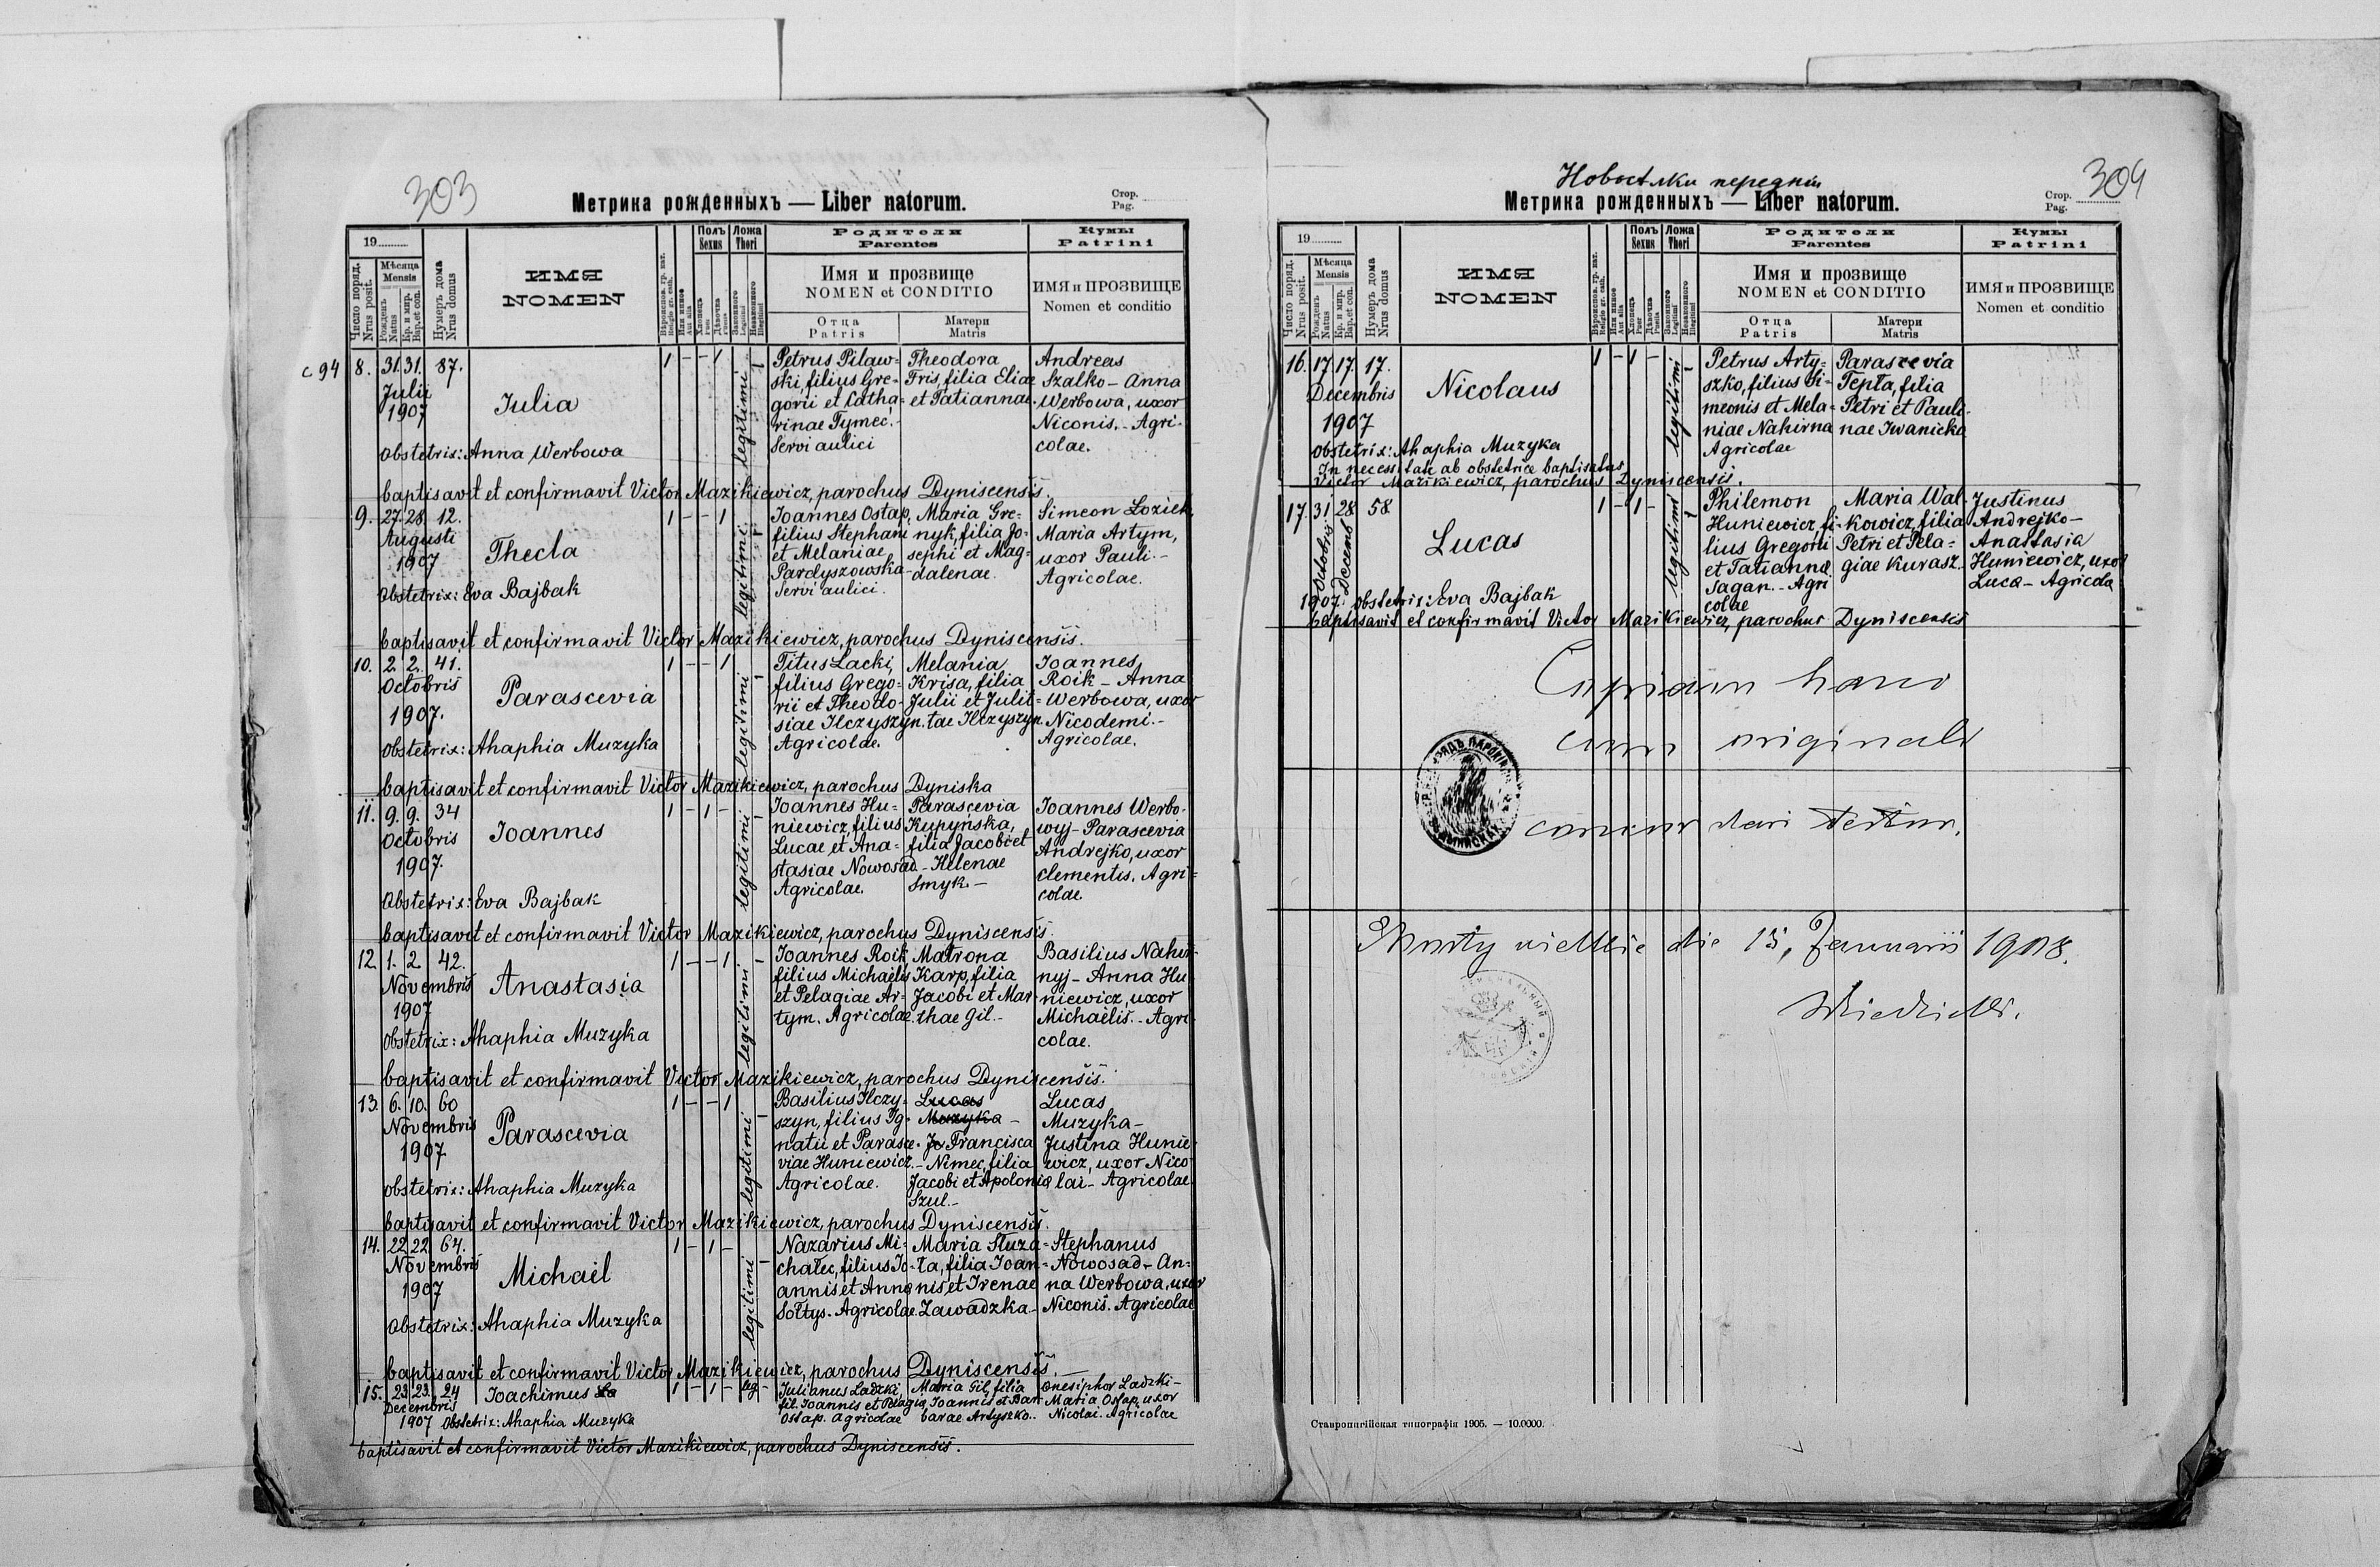 303
Метрика рожденныхъ — Liber natorum.
Стор.
Pag.
19
Число поряд.
Nrus posit.
Мѣсяца
Mensis
Рожденъ
Natus
Кр. и мир.
Bap. et con.
Нумеръ дома
Nrus domus
ИМЯ
NOMEN
Вѣроиспов. гр. кат.
Religio gr. cath.
Или инное
Aut alia
Полъ
Sexus
Хлопецъ
Puer
Дѣвочка
Puella
Ложа
Thori
Законного
Legitimi
Незаконного
Illegitimi
Родители
Parentes
Имя и прозвище
NOMEN et CONDITIO
Отца
Patris
Матери
Matris
Кумы
Patrini
ИМЯ и ПРОЗВИЩЕ
Nomen et conditio
с 94
8. 31. 31. 87.
Julii
1907
Julia
1 - - 1
legitimi
Petrus Pilaw=
ski, filius Gre=
gorii et Catha=
rinae Tymec.-
Servi aulici
Theodora
Fris, filia Eliae
et Tatiannae.
Andreas
Szalko - Anna
Werbowa, uxor
Niconis. - Agri-
colae.
Obstetrix: Anna Werbowa
baptisavit et confirmavit Victor Mazikiewicz, parochus Dyniscensis.
9. 27. 28. 12.
Augusti
1907
Thecla
1 - - 1
legitimi
Joannes Ostap,
filius Stephani
et Melaniae
Pardyszowska-
Servi aulici.
Maria Gre=
nyk, filia Jo=
sephi et Mag=
dalenae.
Simeon Łoziek
Maria Artym,
uxor Pauli.-
Agricolae.
Obstetrix: Eva Bajbak
baptisavit et confirmavit Victor Mazikiewicz, parochus Dyniscensis.
10. 2. 2. 41.
Octobris
1907.
Parascevia
1 - - 1
legitimi
Titus Lacki,
filius Grego=
rii et Theodo-
siae Ilczyszyn.
Agricolae.
Melania
Krisa, filia
Julii et Julit=
tae Ilczyszyn.
Joannes
Roik - Anna
Werbowa, uxor
Nicodemi.-
Agricolae.
Obstetrix: Ahaphia Muzyka
baptisavit et confirmavit Victor Mazikiewicz, parochus Dyniska
11. 9. 9. 34
Octobris
1907.
Joannes
1 - 1 -
legitimi
Joannes Hu=
niewicz, filius
Lucae et Ana=
stasiae Nowosad.-
Agricolae.
Parascevia
Kupyńska,
filia Jacobi et
Helenae
Smyk.-
Joannes Werbo-
wyj - Parascevia
Andrejko, uxor
Clementis. Agri=
colae.
Obstetrix: Eva Bajbak
baptisavit et confirmavit Victor Mazikiewicz, parochus Dyniscensis.
12. 1. 2. 42.
Novembris
1907
Anastasia
1 - - 1
legitimi
Joannes Roik,
filius Michaelis
et Pelagiae Ar=
tym. Agricolae.
Matrona
Karp, filia
Jacobi et Mar-
thae Gil.-
Basilius Nahir-
nyj - Anna Hu-
niewicz, uxor
Michaelis. - Agri-
colae.
Obstetrix: Ahaphia Muzyka
baptisavit et confirmavit Victor Mazikiewicz, parochus Dyniscensis.
13. 6. 10. 60
Novembris
1907
Parascevia
1 - - 1
legitimi
Basilius Ilczy-
szyn, filius Ig-
natii et Parasce-
viae Huniewicz.-
Agricolae.
Lucas
Muzyka -
Jo Francisca
Nimec, filia
Jacobi et Apoloniae
Szul.-
Lucas
Muzyka -
Justina Hunie-
wicz, uxor Nico
lai - Agricolae
obstetrix: Ahaphia Muzyka
baptisavit et confirmavit Victor Mazikiewicz, parochus Dyniscensis.
14. 22 22. 64.
Novembris
1907
Michail
1 - 1 -
legitimi
Nazarius Mi-
chałec, filius Jo-
annis et Annae
Sołtys. Agricolae.
Maria Słuza=
ta, filia Joan=
nis et Irenae
Zawadzka-
Stephanus
Nowosad - An=
na Werbowa, uxor
Niconis. Agricolae
Obstetrix: Ahaphia Muzyka
baptisavit et confirmavit Victor Mazikiewicz, parochus Dyniscensis.
15. 23 23. 24
Decembris
1907
Joachimus
1 - 1 - leg -
Julianus Ladzki,
fil. Joannis et Pelagiae
Ostap. Agricolae
Maria Gil, filia
Joannis et Bar-
barae Artyszko..
Onesiphor Ladzki -
Maria Ostap, uxor
Nicolai. Agricolae
Obstetrix: Ahaphia Muzyka
baptisavit et confirmavit Victor Mazikiewicz, parochus Dyniscensis.
Новосѣлки передніи
304
Метрика рожденныхъ — Liber natorum.
Стор.
Pag.
19
Число поряд.
Nrus posit.
Мѣсяца
Mensis
Рожденъ
Natus
Кр. и мир.
Bap. et con.
Нумеръ дома
Nrus domus
ИМЯ
NOMEN
Вѣроиспов. гр. кат.
Religio gr. cath.
Или инное
Aut alia
Полъ
Sexus
Хлопецъ
Puer
Дѣвочка
Puella
Ложа
Thori
Законного
Legitimi
Незаконного
Illegitimi
Родители
Parentes
Имя и прозвище
NOMEN et CONDITIO
Отца
Patris
Матери
Matris
Кумы
Patrini
ИМЯ и ПРОЗВИЩЕ
Nomen et conditio
16. 17. 17. 17.
Decembris
1907
Nicolaus
1 - 1 -
legitimi
Petrus Arty-
szko, filius Si-
meonis et Mela=
niae Nahirna
Agricolae
Parascevia
Tepła, filia
Petri et Pauli-
nae Iwanicka
Obstetrix: Ahaphia Muzyka
In necessitate ab obstetrice baptisatus
Victor Mazikiewicz, parochus Dyniscensis.
17. 31 28 58
Octobris
Decemb
1907.
Lucas
1 - 1 -
legitimi
Philemon
Huniewicz, fi-
lius Gregorii
et Tatiannae
Sagan. - Agri
colae
Maria Wal-
kowicz, filia
Petri et Pela=
giae Kurasz.
Justinus
Andrejko -
Anastasia
Huniewicz, uxor
Luca - Agricola
obstetrix: Eva Bajbak
baptisavit et confirmavit Victor Mazikiewicz, parochus Dyniscensis
Copiam hanc
cum originali
concordari testor.
die 15, Januarii 1908.
Ставропигійская типографія 1905. — 10.0000.